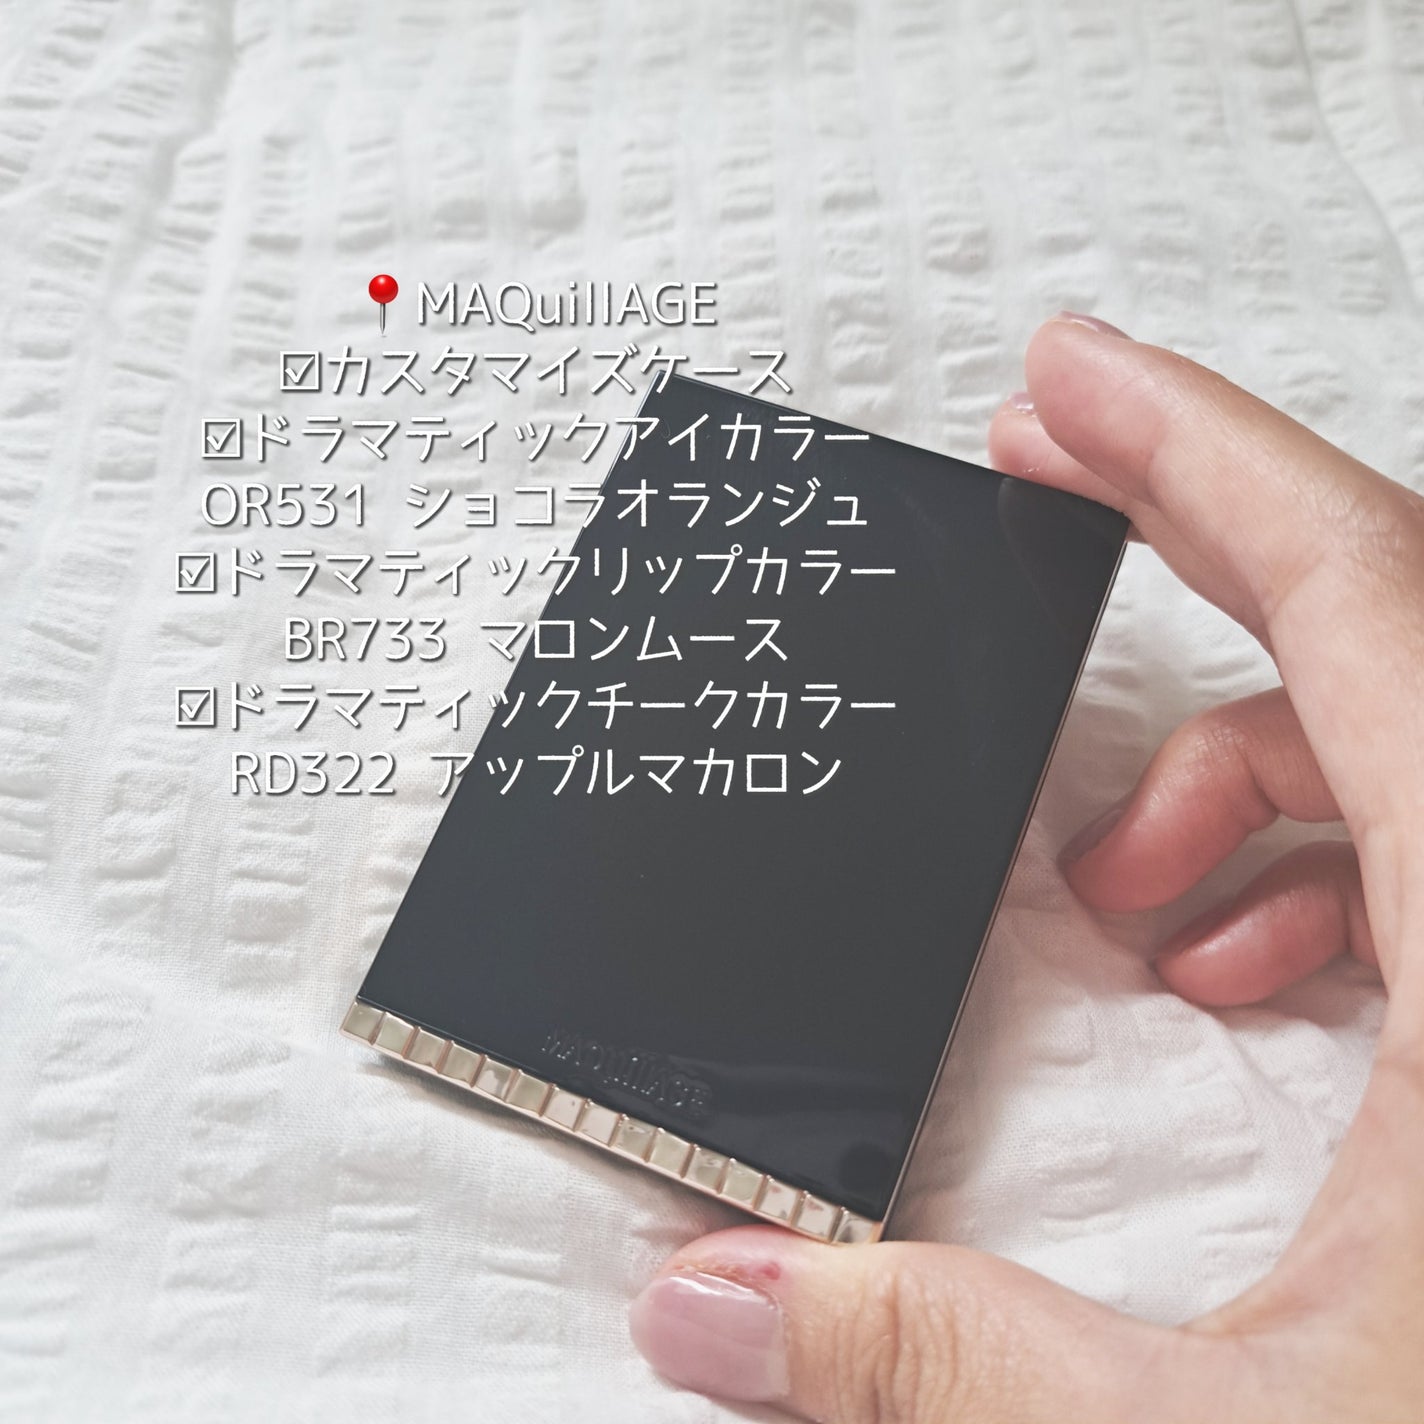 📍MAQuillAGE
☑カスタマイズケース
☑ドラマティックアイカラー
OR531 ショコラオランジュ
☑ドラマティックリップカラー
BR733 マロンムース
☑ドラマティックチークカラー
RD322 アップルマカロン
MAQuillAGE